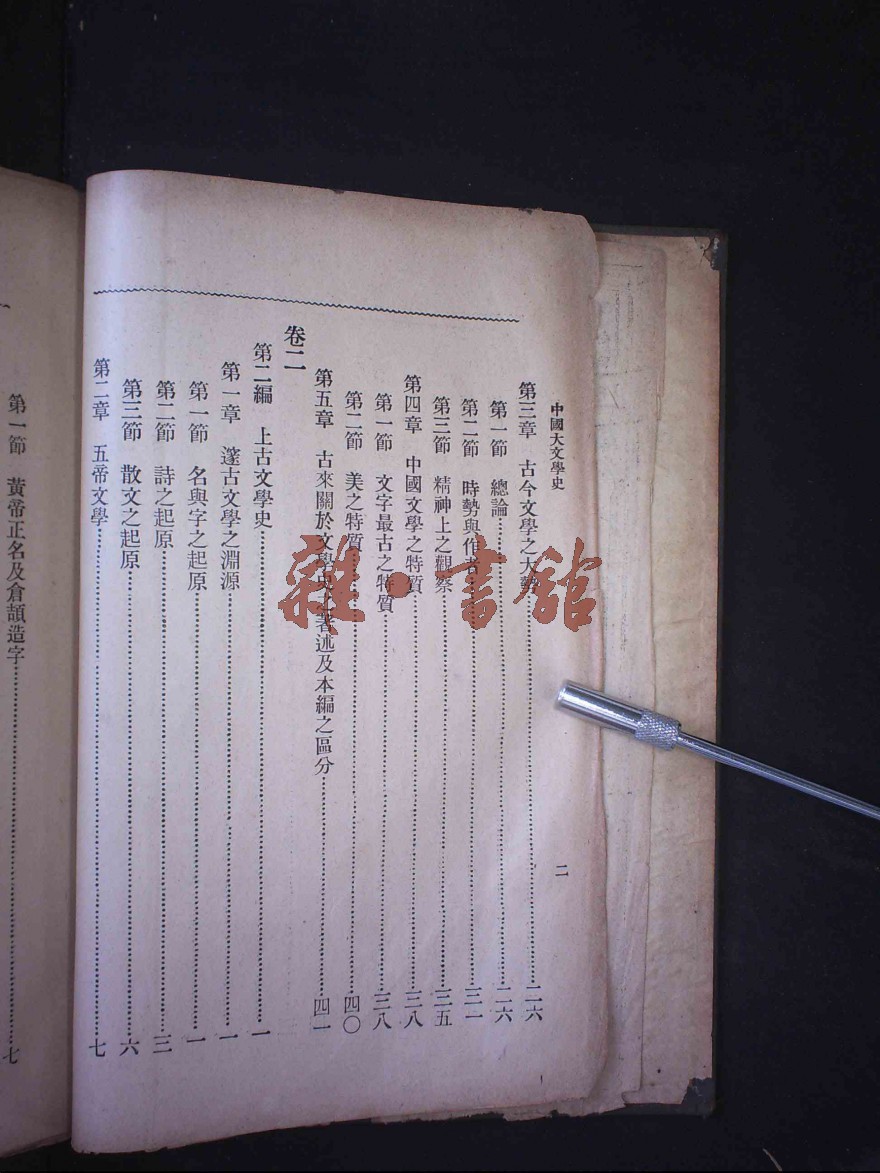 中國大文學史
二
第三章 古今文學之大勢……二六
第一節 總論……二六
第二節 時勢與作者……三一
第三節 精神上之觀察……三五
第四章 中國文學之特質……三八
第一節 文字最古之特質……三八
第二節 美之特質……四〇
第五章 古來關於文學史之著述及本編之區分……四一
卷二
第二編 上古文學史……一
第一章 邃古文學之淵源……一
第一節 名與字之起原……一
第二節 詩之起原……三
第三節 散文之起原……六
第二章 五帝文學……七
第一節 黃帝正名及倉頡造字……七
雜·書館